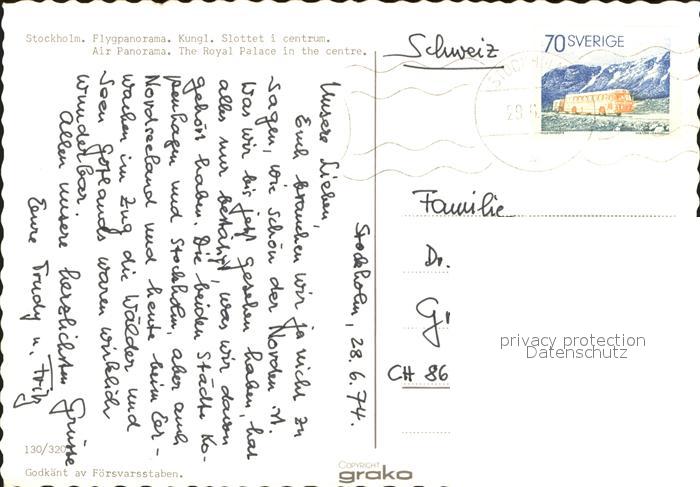 Stockholm. Flygpanorama. Kungl. Slottet i centrum.
Air Panorama. The Royal Palace in the centre.
Stockholm, 28.6.74.
Unsere Lieben,
Euch brauchen wir ja nicht zu
sagen, wie schön der Norden ist.
Was wir bis jetzt gesehen haben, hat
alles nur bestätigt, was wir davon
gehört haben. Die beiden Städte Ko-
penhagen und Stockholm, aber auch
Nordseeland und heute beim Er-
wachen im Zug die Wälder und
Seen Götlands waren wirklich
wunderbar.
Allen unsere herzlichsten Grüsse
Eure Trudy u. Fritz
130/320
Godkänt av Försvarsstaben.
COPYRIGHT
grako
Schweiz
70 SVERIGE
STOCKHOLM
Familie
Dr.
CH 86
privacy protection
Datenschutz